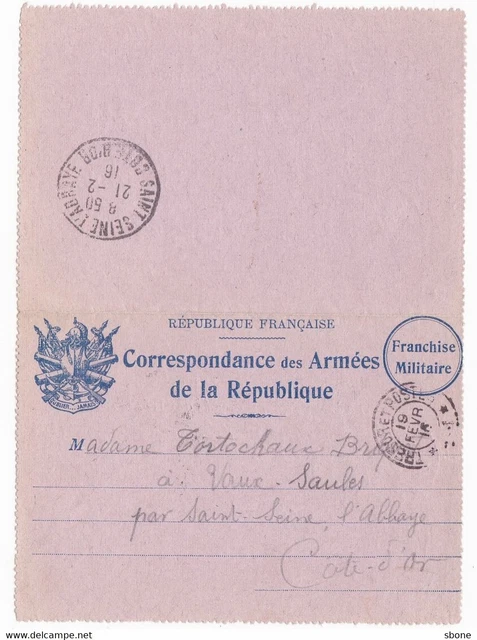 SAINT SEINE L'ABBAYE COTE D'OR
8 50
21 - 2
16
RÉPUBLIQUE FRANÇAISE
Correspondance des Armées
de la République
Franchise
Militaire
JAMAIS
TRESOR ET POSTES
19
FEVR
16
Madame Tortochaux
à Vaux-Saules
par Saint-Seine, l'Abbaye
Côte-d'Or
© sbone